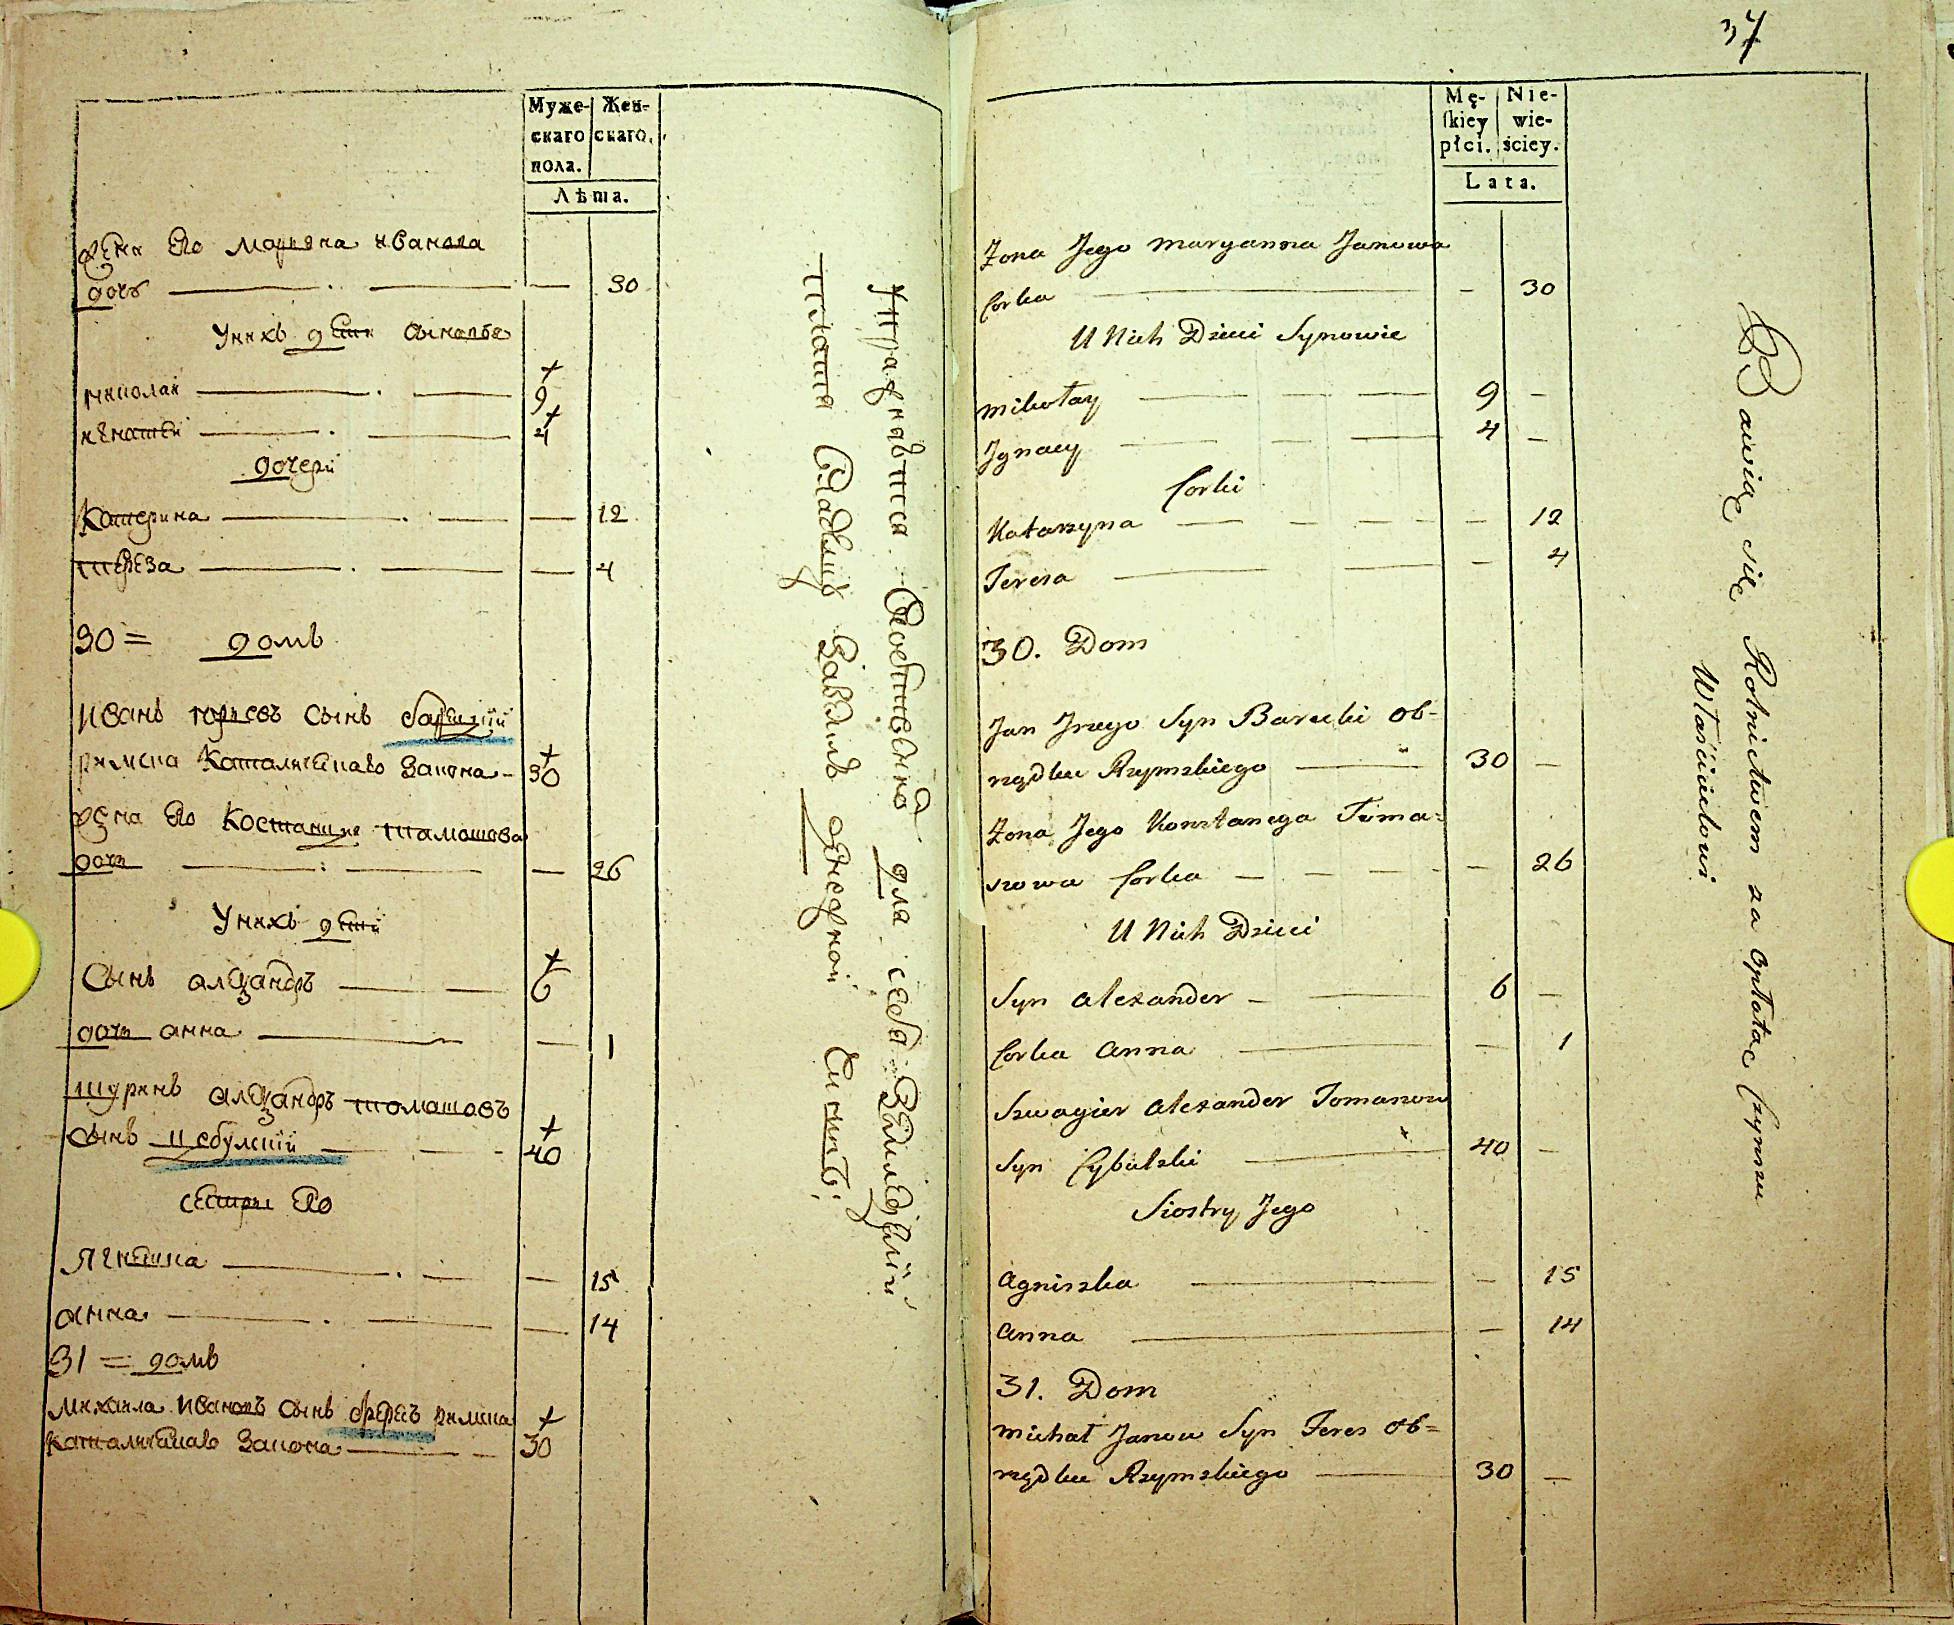 Муже-
скаго
пола.
Жен-
скаго.
Лѣта.
жена его марьяна иванова
дочь 30
У нихъ дети сыновья
миколай 9
игнатей 4
дочери
Катерина 12
тереза 4
30 = домъ
Иванъ юрьевъ сынъ барецкiй
римска католицкаго закона - 30
жена его Костанция томашова
дочь 26
У нихъ дети
Сынъ алеxандръ 6
дочь анна 1
шуринъ алеxандръ томашовъ
сынъ цебулскiй 40
сестры его
Ягнешка 15
анна 14
31 = домъ
Михаила Ивановъ сынъ ферезъ римска
католицкаго закона 30
для себя
37
Mę-
skiey
płci.
Nie-
wie-
ściey.
Lata.
Żona Jego Maryanna Janowa
Corka 30
U Nich Dzieci Synowie
Mikołay 9
Jgnacy 4
Corki
Katarzyna 12
Teresa 4
30. Dom
Jan Jrzego Syn Barecki Ob-
rządku Rzymskiego 30
Żona Jego Konstancya Toma-
szowa Corka 26
U Nich Dzieci
Syn Alexander 6
Corka Anna 1
Szwagier Alexander Tomaszow
Syn Cybulski 40
Siostry Jego
Agniszka 15
Anna 14
31. Dom
Michał Janow Syn Feres Ob=
rządku Rzymskiego 30
Bawią się Rolnictwem za Opłatą Czynszu
Właścicielowi